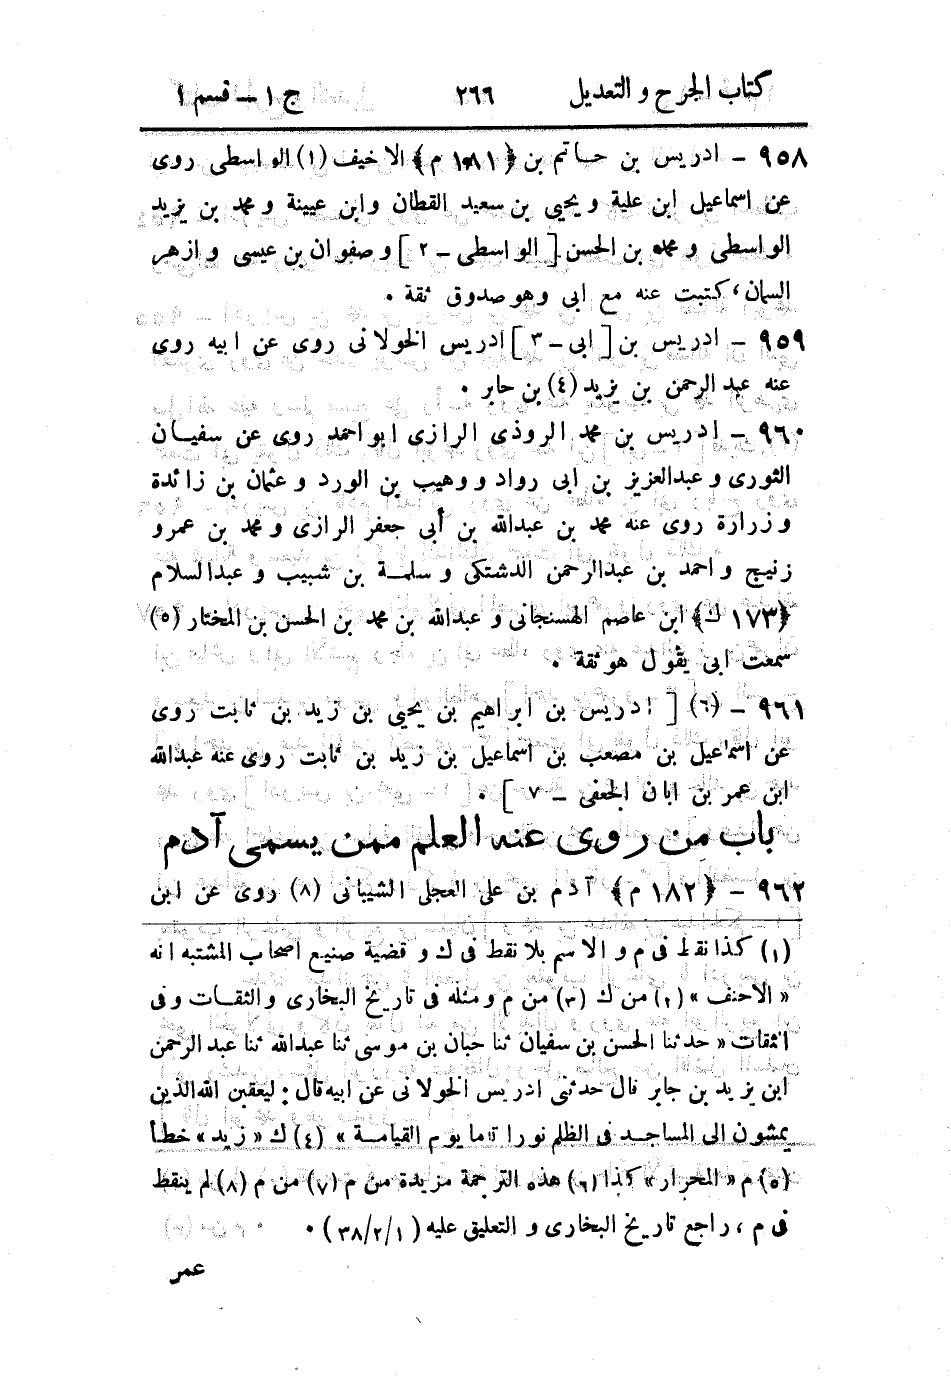 كتاب الجرح و التعديل ٢٦٦ ج ١ – قسم ١
٩٥٨ – ادريس بن حاتم بن ﴿١٨١ م﴾ الاخيف (١) الواسطى روى
عن اسماعيل ابن علية و يحيى بن سعيد القطان وابن عيينة و محمد بن يزيد
الواسطى و محمد بن الحسن [ الواسطى – ٢ ] و صفوان بن عيسى و ازهر
السمان، كتبت عنه مع ابى وهو صدوق ثقة .
٩٥٩ – ادريس بن [ ابى – ٣ ] ادريس الخولانى روى عن ابيه روى
عنه عبد الرحمن بن يزيد (٤) بن جابر .
٩٦٠ – ادريس بن محمد الروذى الرازى ابو احمد روى عن سفيان
الثورى و عبدالعزيز بن ابى رواد و وهيب بن الورد و عثمان بن زائدة
و زرارة روى عنه محمد بن عبدالله بن أبى جعفر الرازى و محمد بن عمرو
زنيج و احمد بن عبدالرحمن الدشتكى و سلمة بن شبيب و عبدالسلام
﴿١٧٣ ك﴾ ابن عاصم الهسنجانى و عبدالله بن محمد بن الحسن بن المختار (٥)
سمعت ابى يقول هو ثقة .
٩٦١ – (٦) [ ادريس بن ابراهيم بن يحيى بن زيد بن ثابت روى
عن اسماعيل بن مصعب بن اسماعيل بن زيد بن ثابت روى عنه عبدالله
ابن عمر بن ابان الجعفى – ٧ ] .
باب من روى عنه العلم ممن يسمى آدم
٩٦٢ – ﴿١٨٢ م﴾ آدم بن على العجلى الشيبانى (٨) روى عن ابن
(١) كذا نقط فى م و الاسم بلا نقط فى ك و قضية صنيع اصحاب المشتبه انه
« الاحنف » (٢) من ك (٣) من م ومثله فى تاريخ البخارى والثقات وفى
الثقات « حدثنا الحسن بن سفيان ثنا حبان بن موسى ثنا عبدالله ثنا عبد الرحمن
ابن يزيد بن جابر قال حدثنى ادريس الخولانى عن ابيه قال : ليعقبن الله الذين
يمشون الى المساجد فى الظلم نورا تاما يوم القيامة » (٤) ك « زيد » خطأ
(٥) م « المحرار » كذا (٦) هذه الترجمة مزيدة من م (٧) من م (٨) لم ينقط
فى م ، راجع تاريخ البخارى و التعليق عليه (٣٨/٢/١) .
عمر